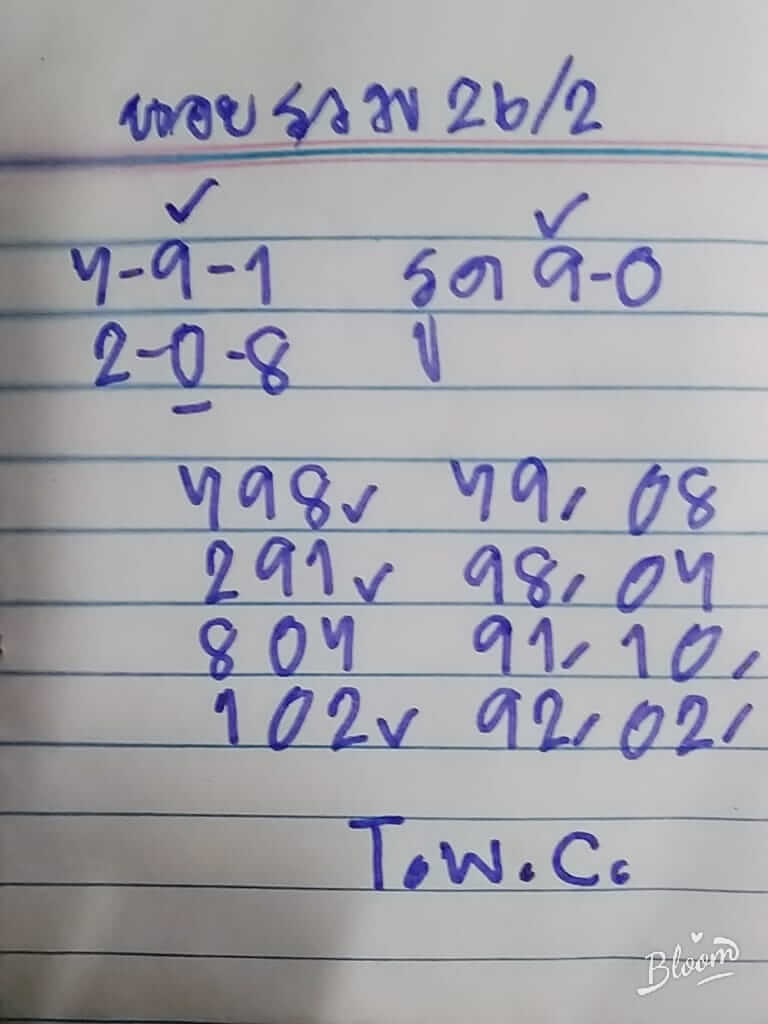 ฮานอยรวม 26/2
7-9-1 รูด 9-0
2-0-8 ปู
798 79, 08
291 98, 07
807 91, 10,
102 92, 02,
T.W.C.
Bloom